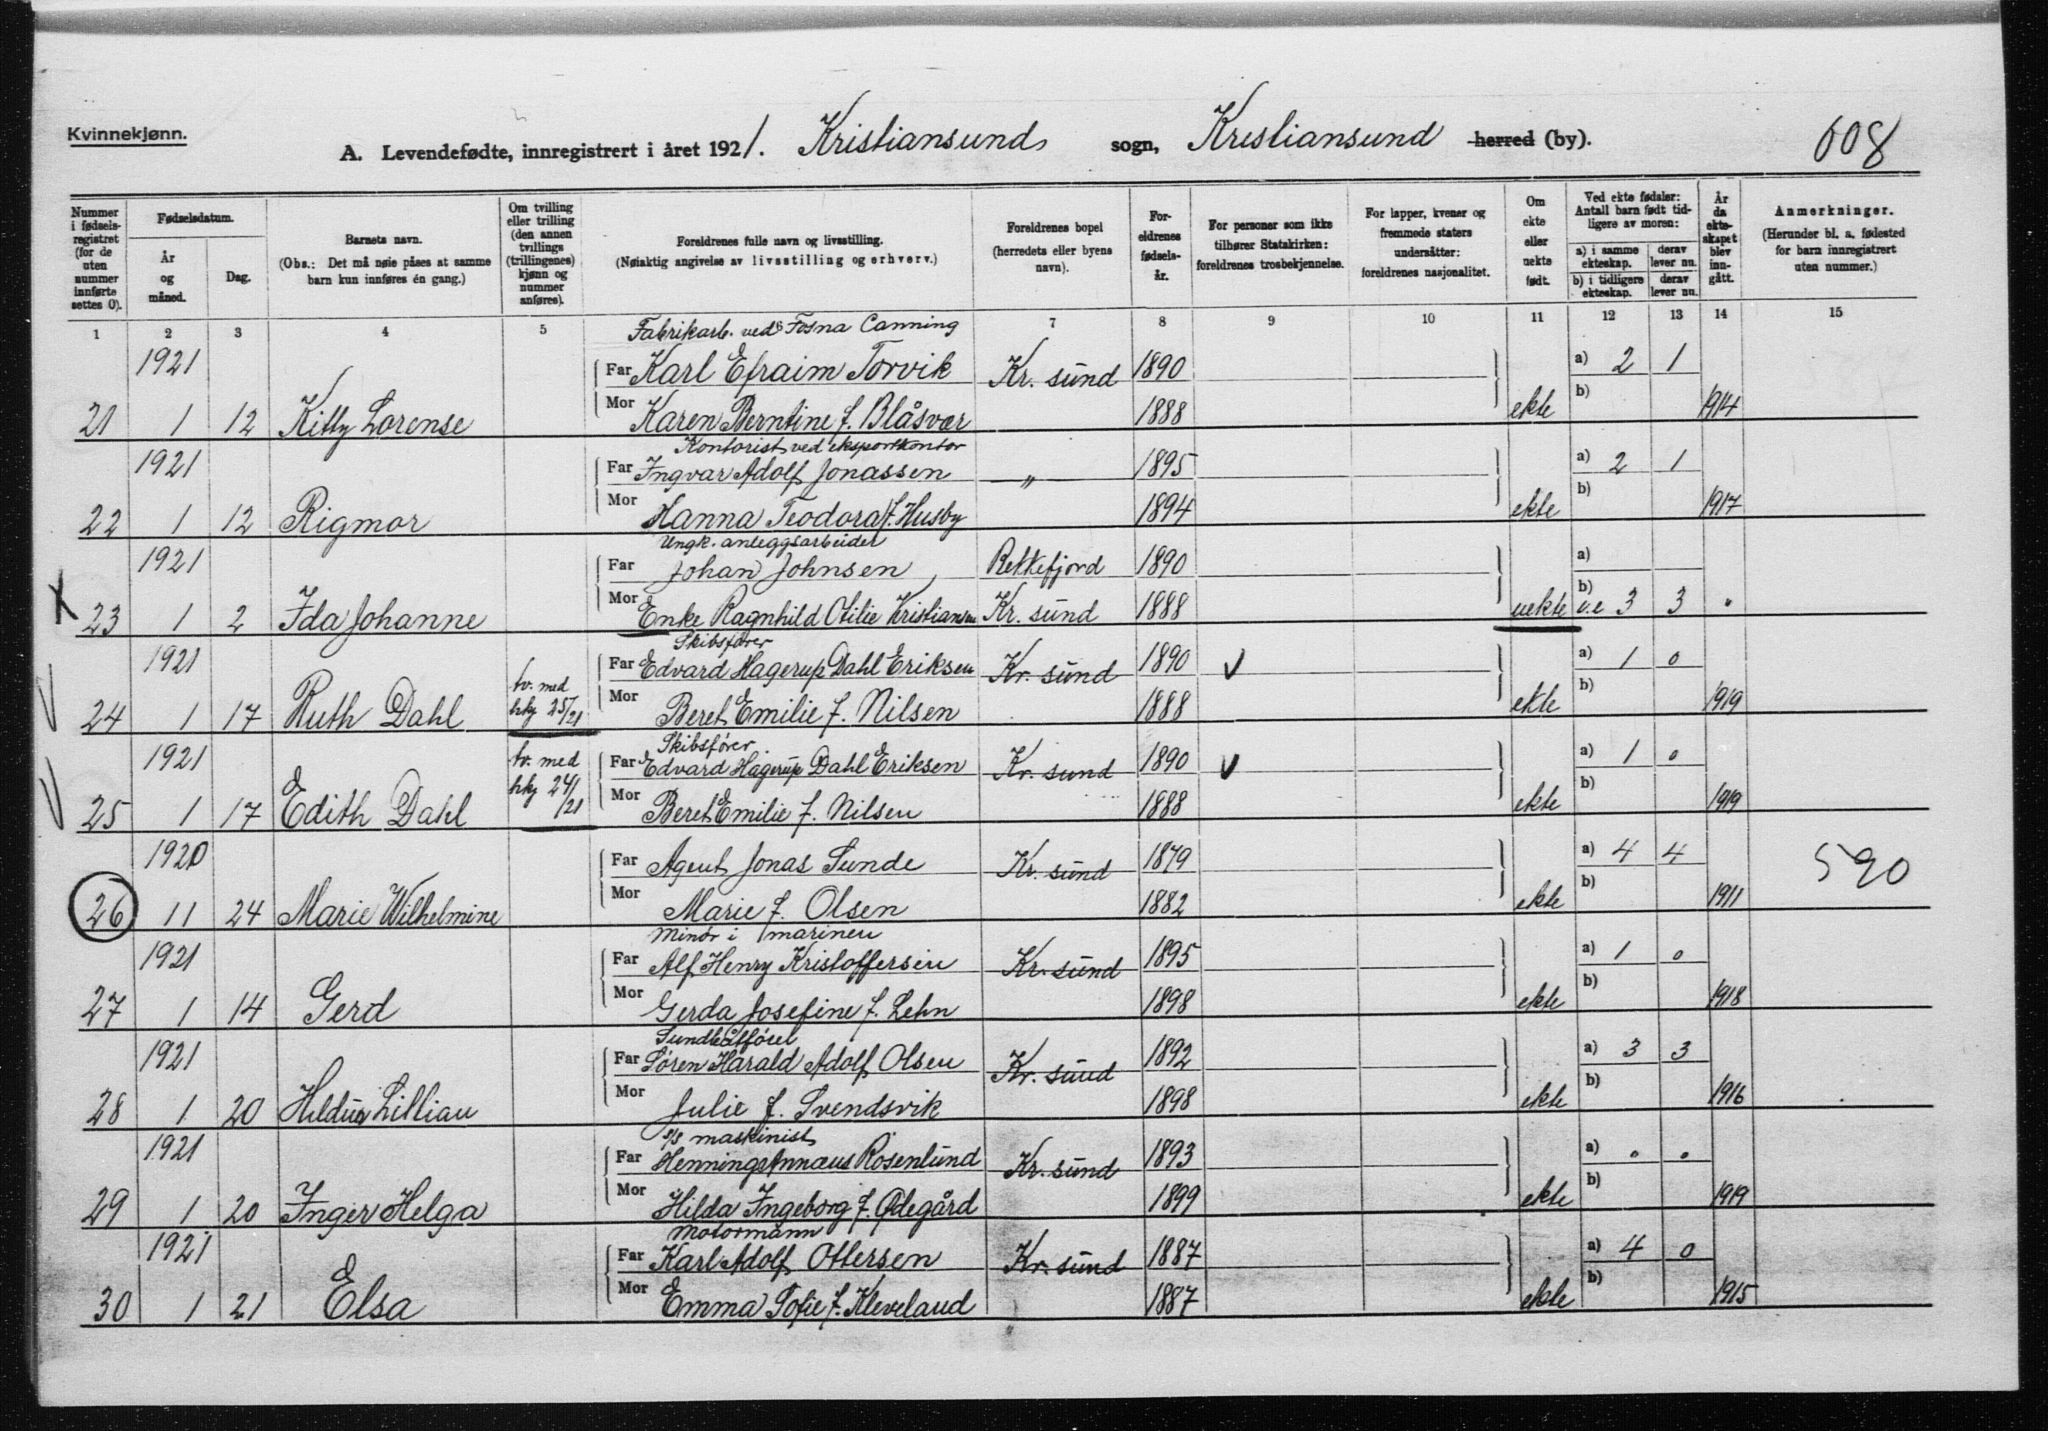 Kvinnekjønn.
A. Levendefødte, innregistrert i året 1921. Kristiansund sogn, Kristiansund herred (by). 608
Nummer i fødselsregistret (for de uten nummer innførte settes 0).
Fødselsdatum.
År og måned.
Dag.
Barnets navn.
(Obs.: Det må nøie påses at samme barn kun innføres én gang.)
Om tvilling eller trilling (den annen tvillings (trillingenes) kjønn og nummer anføres).
Foreldrenes fulle navn og livsstilling.
(Nøiaktig angivelse av livsstilling og erhverv.)
Foreldrenes bopel (herredets eller byens navn).
Foreldrenes fødselsår.
For personer som ikke tilhører Statskirken: foreldrenes trosbekjennelse.
For lapper, kvener og fremmede staters undersåtter: foreldrenes nasjonalitet.
Om ekte eller uekte født.
Ved ekte fødsler: Antall barn født tidligere av moren:
a) i samme ekteskap. derav lever nu.
b) i tidligere ekteskap. derav lever nu.
År da ekteskapet blev inngått.
Anmerkninger.
(Herunder bl. a. fødested for barn innregistrert uten nummer.)
1 2 3 4 5 6 7 8 9 10 11 12 13 14 15
Fabrikarb. ved Fosna Canning
1921 Far Karl Efraim Torvik Kr. sund 1890 a) 2 1
21 1 12 Kitty Lorense Mor Karen Berntine f. Blåsvær 1888 ekte b) 1914
Kontorist ved eksportkontor
1921 Far Ingvar Adolf Jonassen " 1895 a) 2 1
22 1 12 Rigmor Mor Hanna Teodora f. Husby 1894 ekte b) 1917
Ungk. anleggsarbeider
1921 Far Johan Johnsen Rekkefjord 1890 a)
23 1 2 Ida Johanne Mor Enke Ragnhild Otilie Kristiansen Kr. sund 1888 uekte b) u.e 3 3
Skibsfører
1921 Far Edvard Hagerup Dahl Eriksen Kr. sund 1890 a) 1 0
24 1 17 Ruth Dahl tv. med kkj 25/21 Mor Beret Emilie f. Nilsen 1888 ekte b) 1919
Skibsfører
1921 Far Edvard Hagerup Dahl Eriksen Kr. sund 1890 a) 1 0
25 1 17 Edith Dahl tv. med kkj 24/21 Mor Beret Emilie f. Nilsen 1888 ekte b) 1919
1920 Far Agent Jonas Sunde Kr. sund 1879 a) 4 4 590
26 11 24 Marie Wilhelmine Mor Marie f. Olsen 1882 ekte b) 1911
Minør i marinen
1921 Far Alf Henry Kristoffersen Kr. sund 1895 a) 1 0
27 1 14 Gerd Mor Gerda Josefine f. Lehn 1898 ekte b) 1918
Sundbåtførel
1921 Far Søren Harald Adolf Olsen Kr. sund 1892 a) 3 3
28 1 20 Hildur Lillian Mor Julie f. Svendsvik 1898 ekte b) 1916
s/s maskinist
1921 Far Henning Annæus Rosenlund Kr. sund 1893 a) . .
29 1 20 Inger Helga Mor Hilda Ingeborg f. Ødegård 1899 ekte b) 1919
Motormann
1921 Far Karl Adolf Ottersen Kr. sund 1887 a) 4 0
30 1 21 Elsa Mor Emma Sofie f. Kleveland 1887 ekte b) 1915